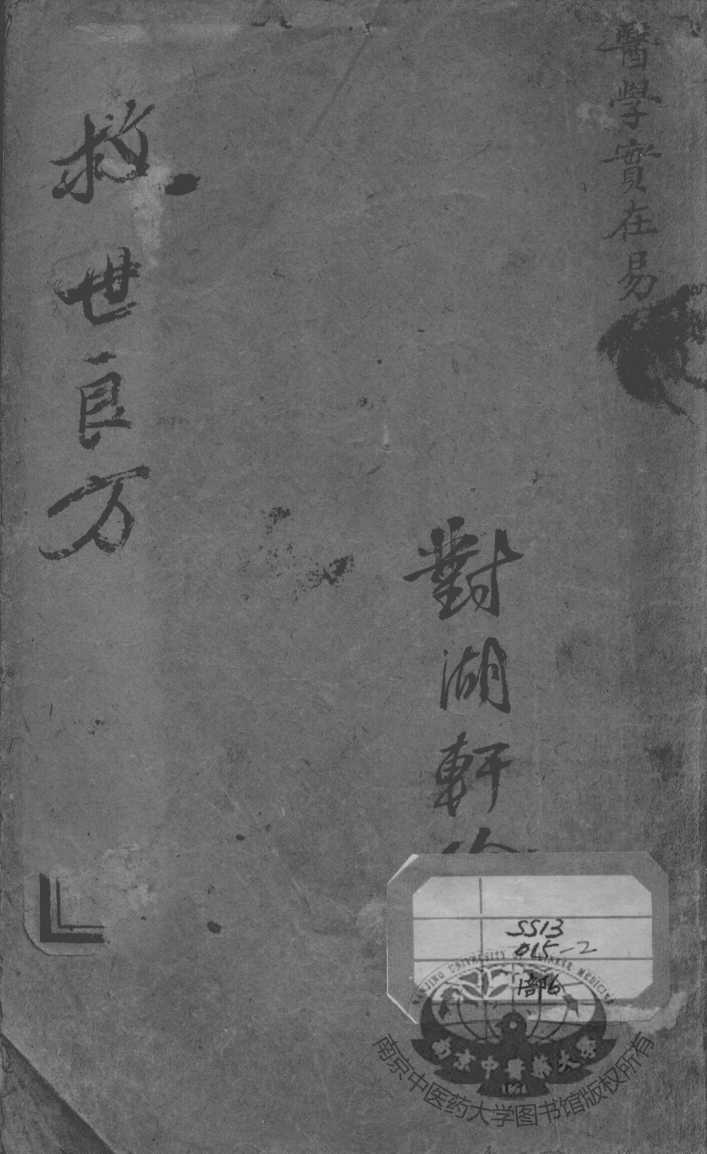 醫學實在易
對湖軒
救世良方
SS13
015-2
1部6
NANJING UNIVERSITY OF CHINESE MEDICINE
南京中醫藥大學
南京中医药大学图书馆版权所有